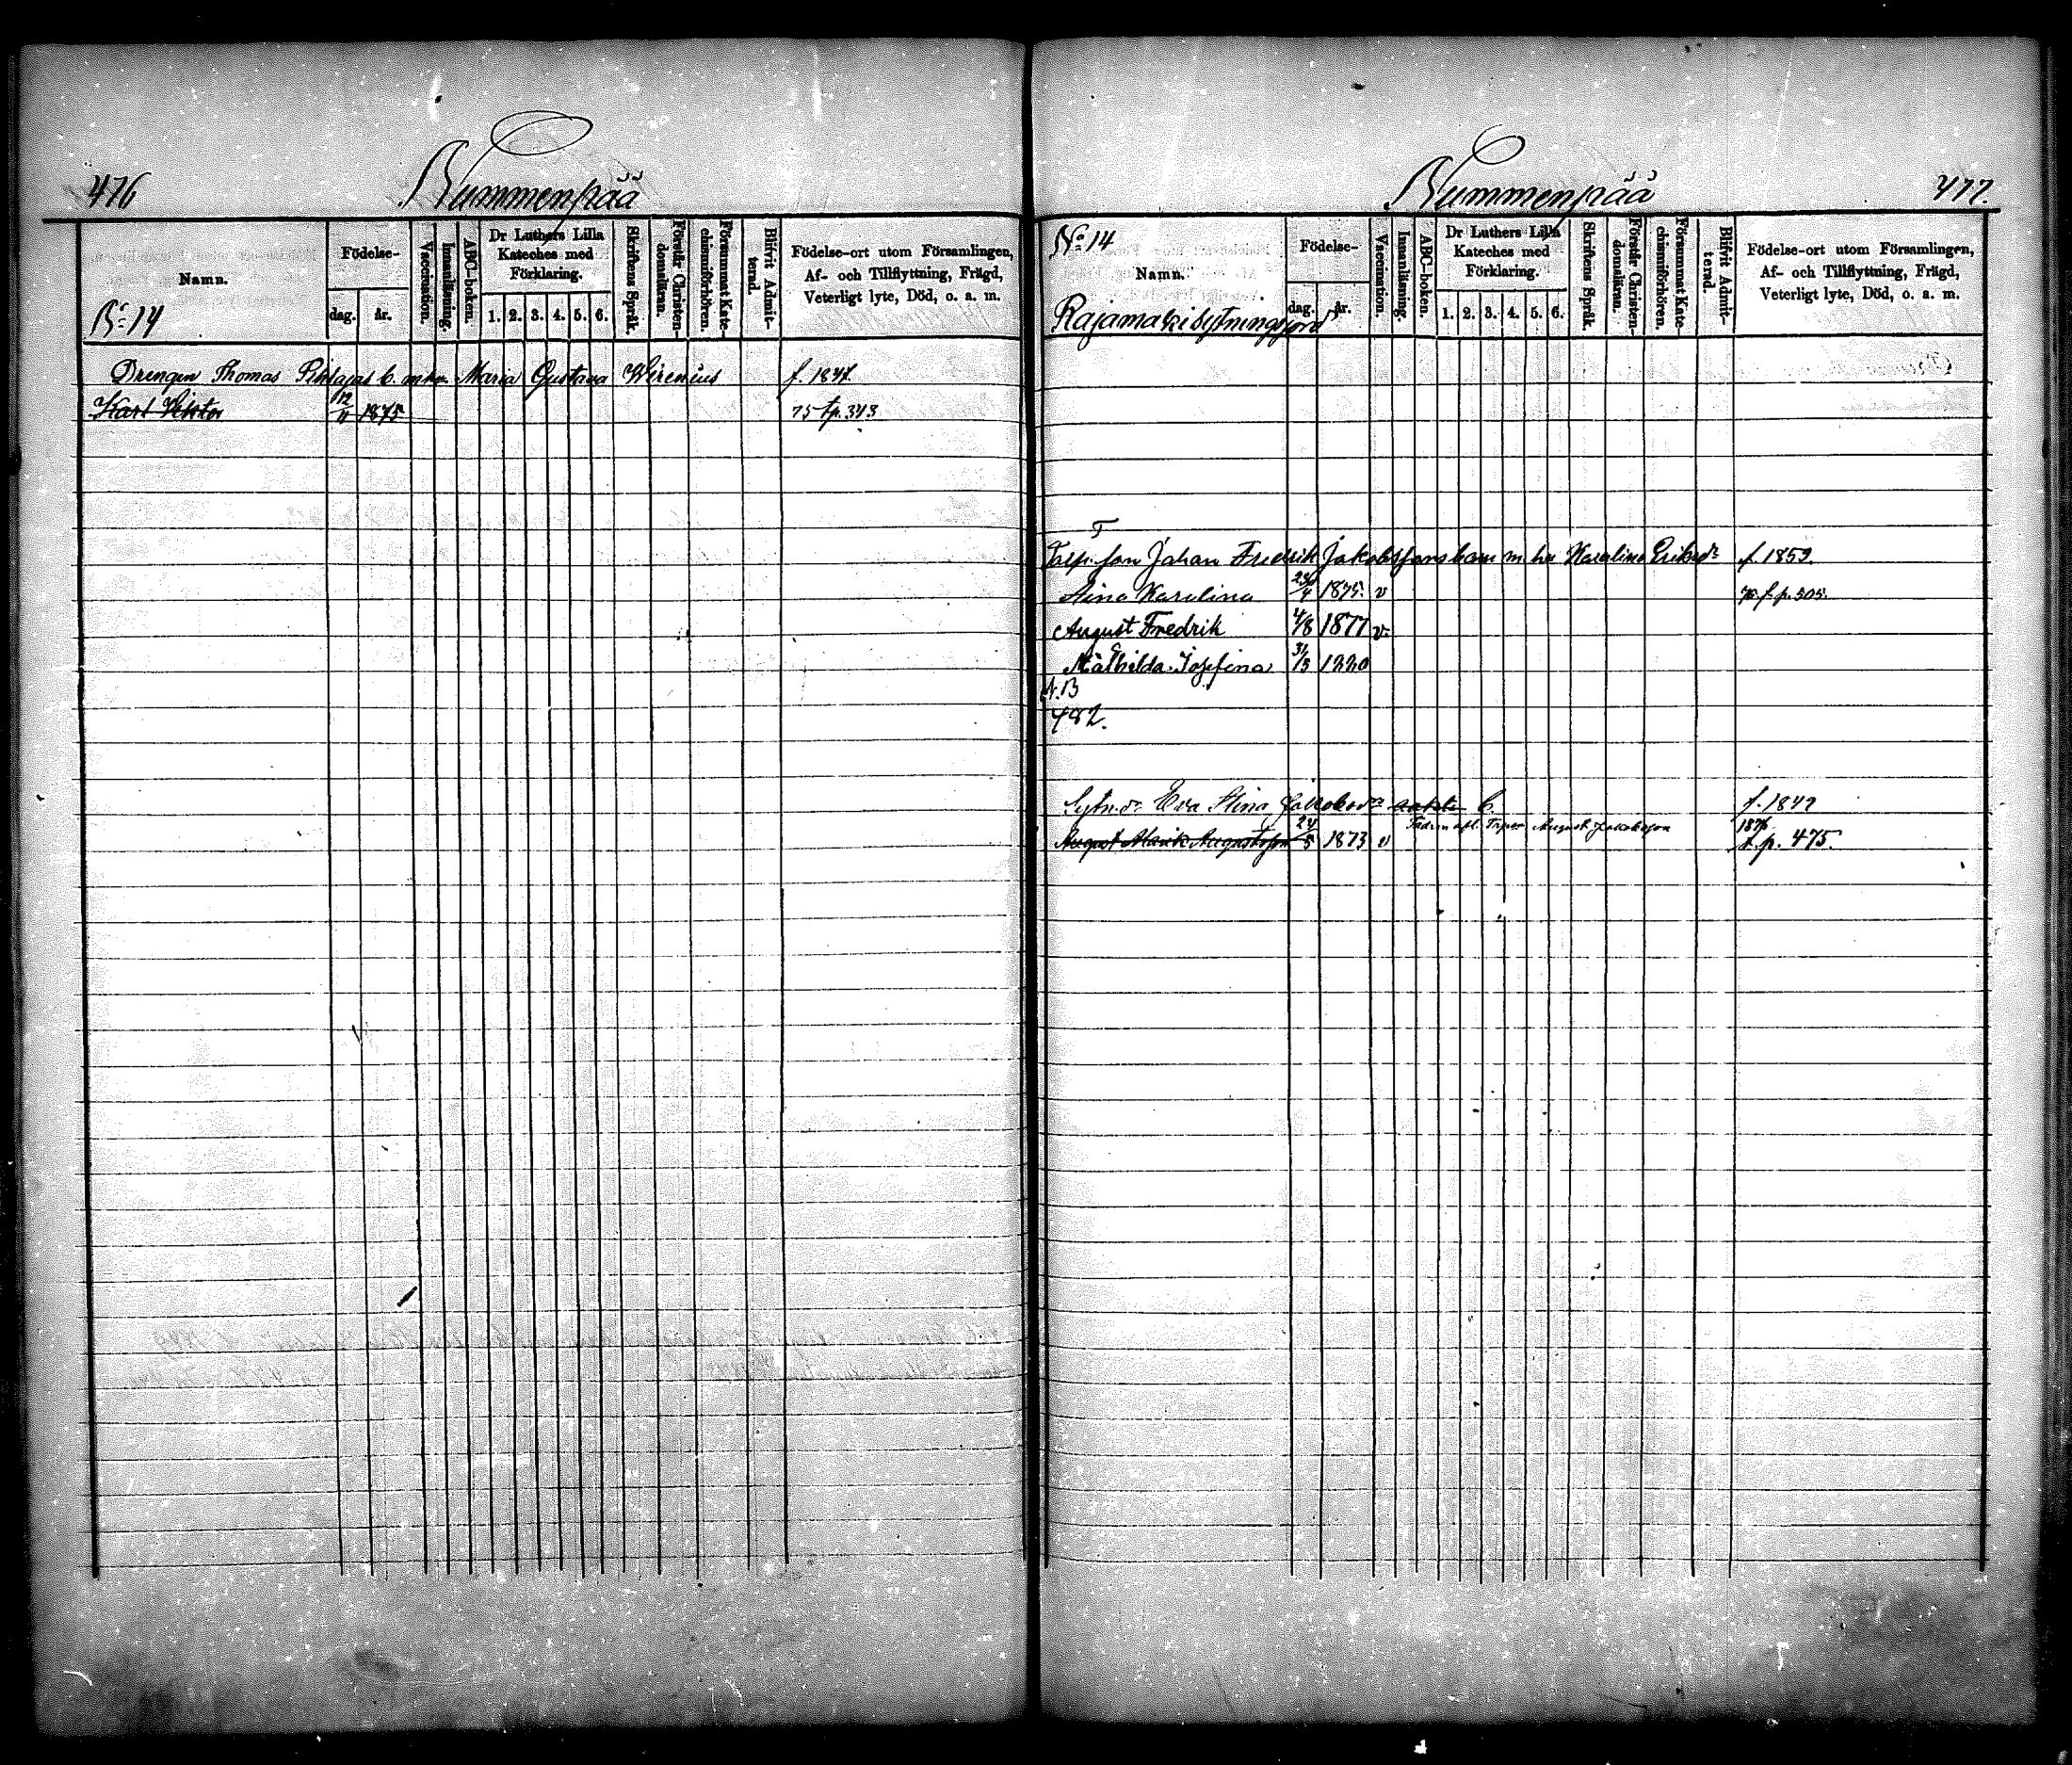 476
Nummenpää
Namn.
Födelse-
dag.
år.
Vaccination.
Innanläsning.
ABC-boken.
Dr Luthers Lilla
Kateches med
Förklaring.
1. 2. 3. 4. 5. 6.
Skriftens Språk.
Förstår Christen-
domsläran.
Försummat Kate-
chismiförhören.
Blifvit Admit-
terad.
Födelse-ort utom Församlingen,
Af- och Tillflyttning, Frägd,
Veterligt lyte, Död, o. a. m.
No 14
Drengen Thomas b. m. hu Maria Gustava Wirenius f. 1847.
Karl Viktor 12/11 1875 75 t.p. 343
Nummenpää
477.
No 14
Namn.
Rajamäki sytningsjord
Födelse-
dag.
år.
Vaccination.
Innanläsning.
ABC-boken.
Dr Luthers Lilla
Kateches med
Förklaring.
1. 2. 3. 4. 5. 6.
Skriftens Språk.
Förstår Christen-
domsläran.
Försummat Kate-
chismiförhören.
Blifvit Admit-
terad.
Födelse-ort utom Församlingen,
Af- och Tillflyttning, Frägd,
Veterligt lyte, Död, o. a. m.
T
Johan Fredrik Jakobssons barn m. hu Karolina Eriksdr f. 1852.
Karolina 1875. v f. p. 505.
August Fredrik 4/8 1877 v.
Mathilda Josefina 31/3 1880
N. B
482.
Sytn.dr Eva Stina Jakobsdr b. f. 1842
Fadren August Jakobsson
August Augustsson 24/5 1873 v 1876 t. p. 475.